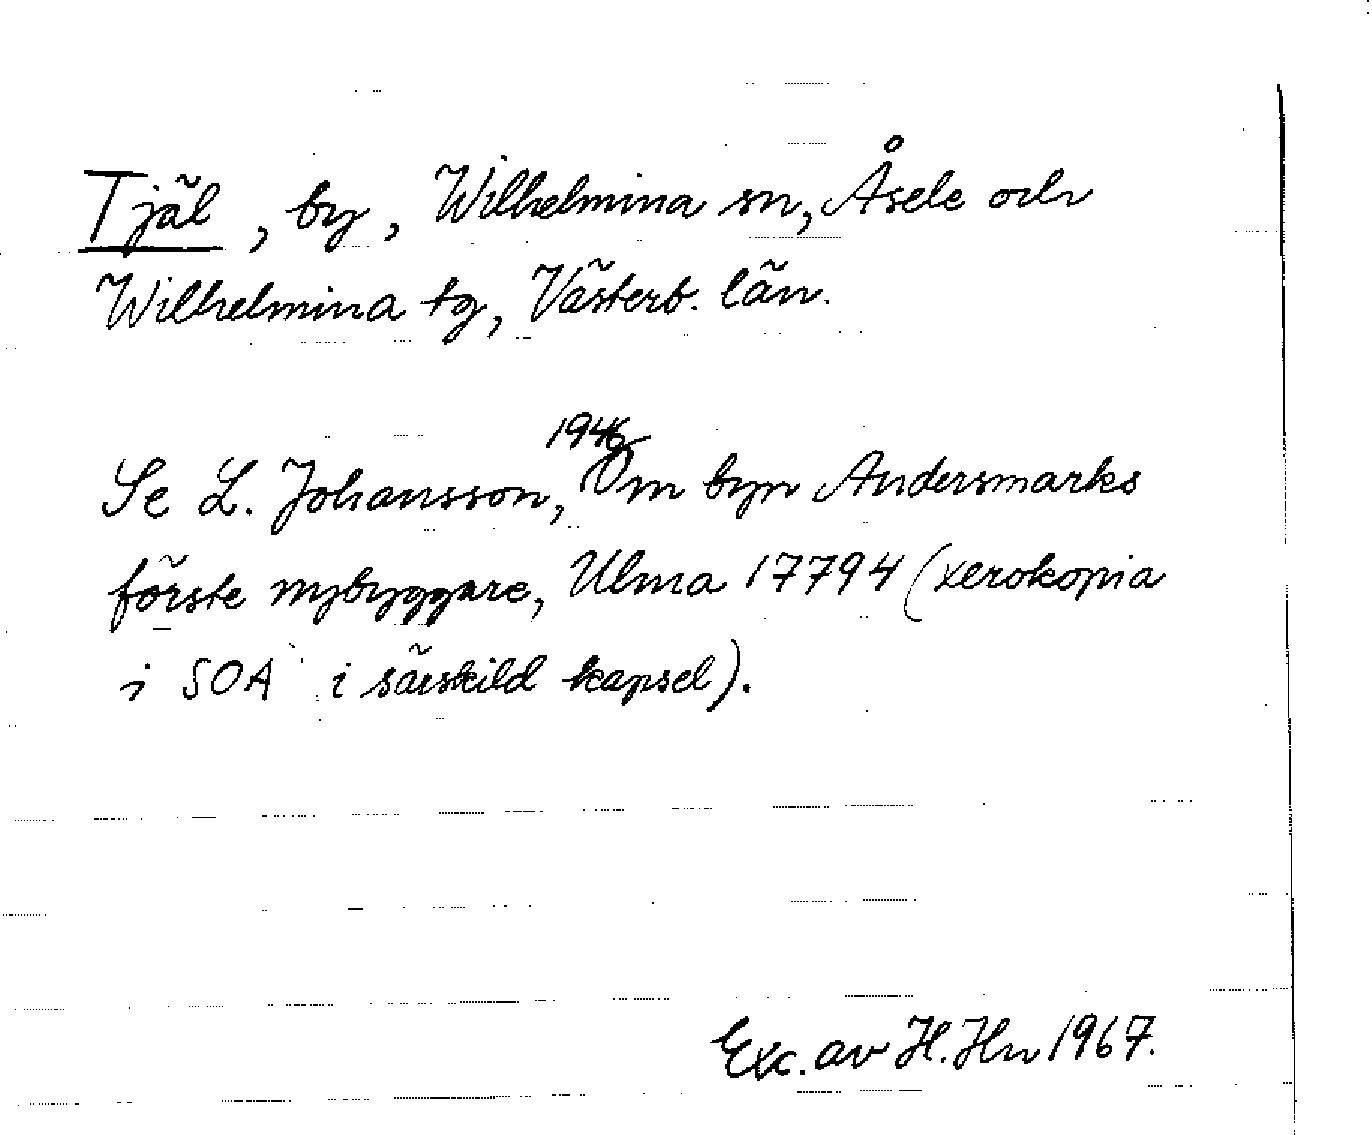 Tjäl, by, Wilhelmina sn, Åsele och
Wilhelmina tg, Västerb. län.
1946
Se L. Johansson, Om byn Andersmarks
förste nybyggare, Ulma 17794 (xerokopia
i SOA i särskild kapsel).
Exc. av H. Hn 1967.